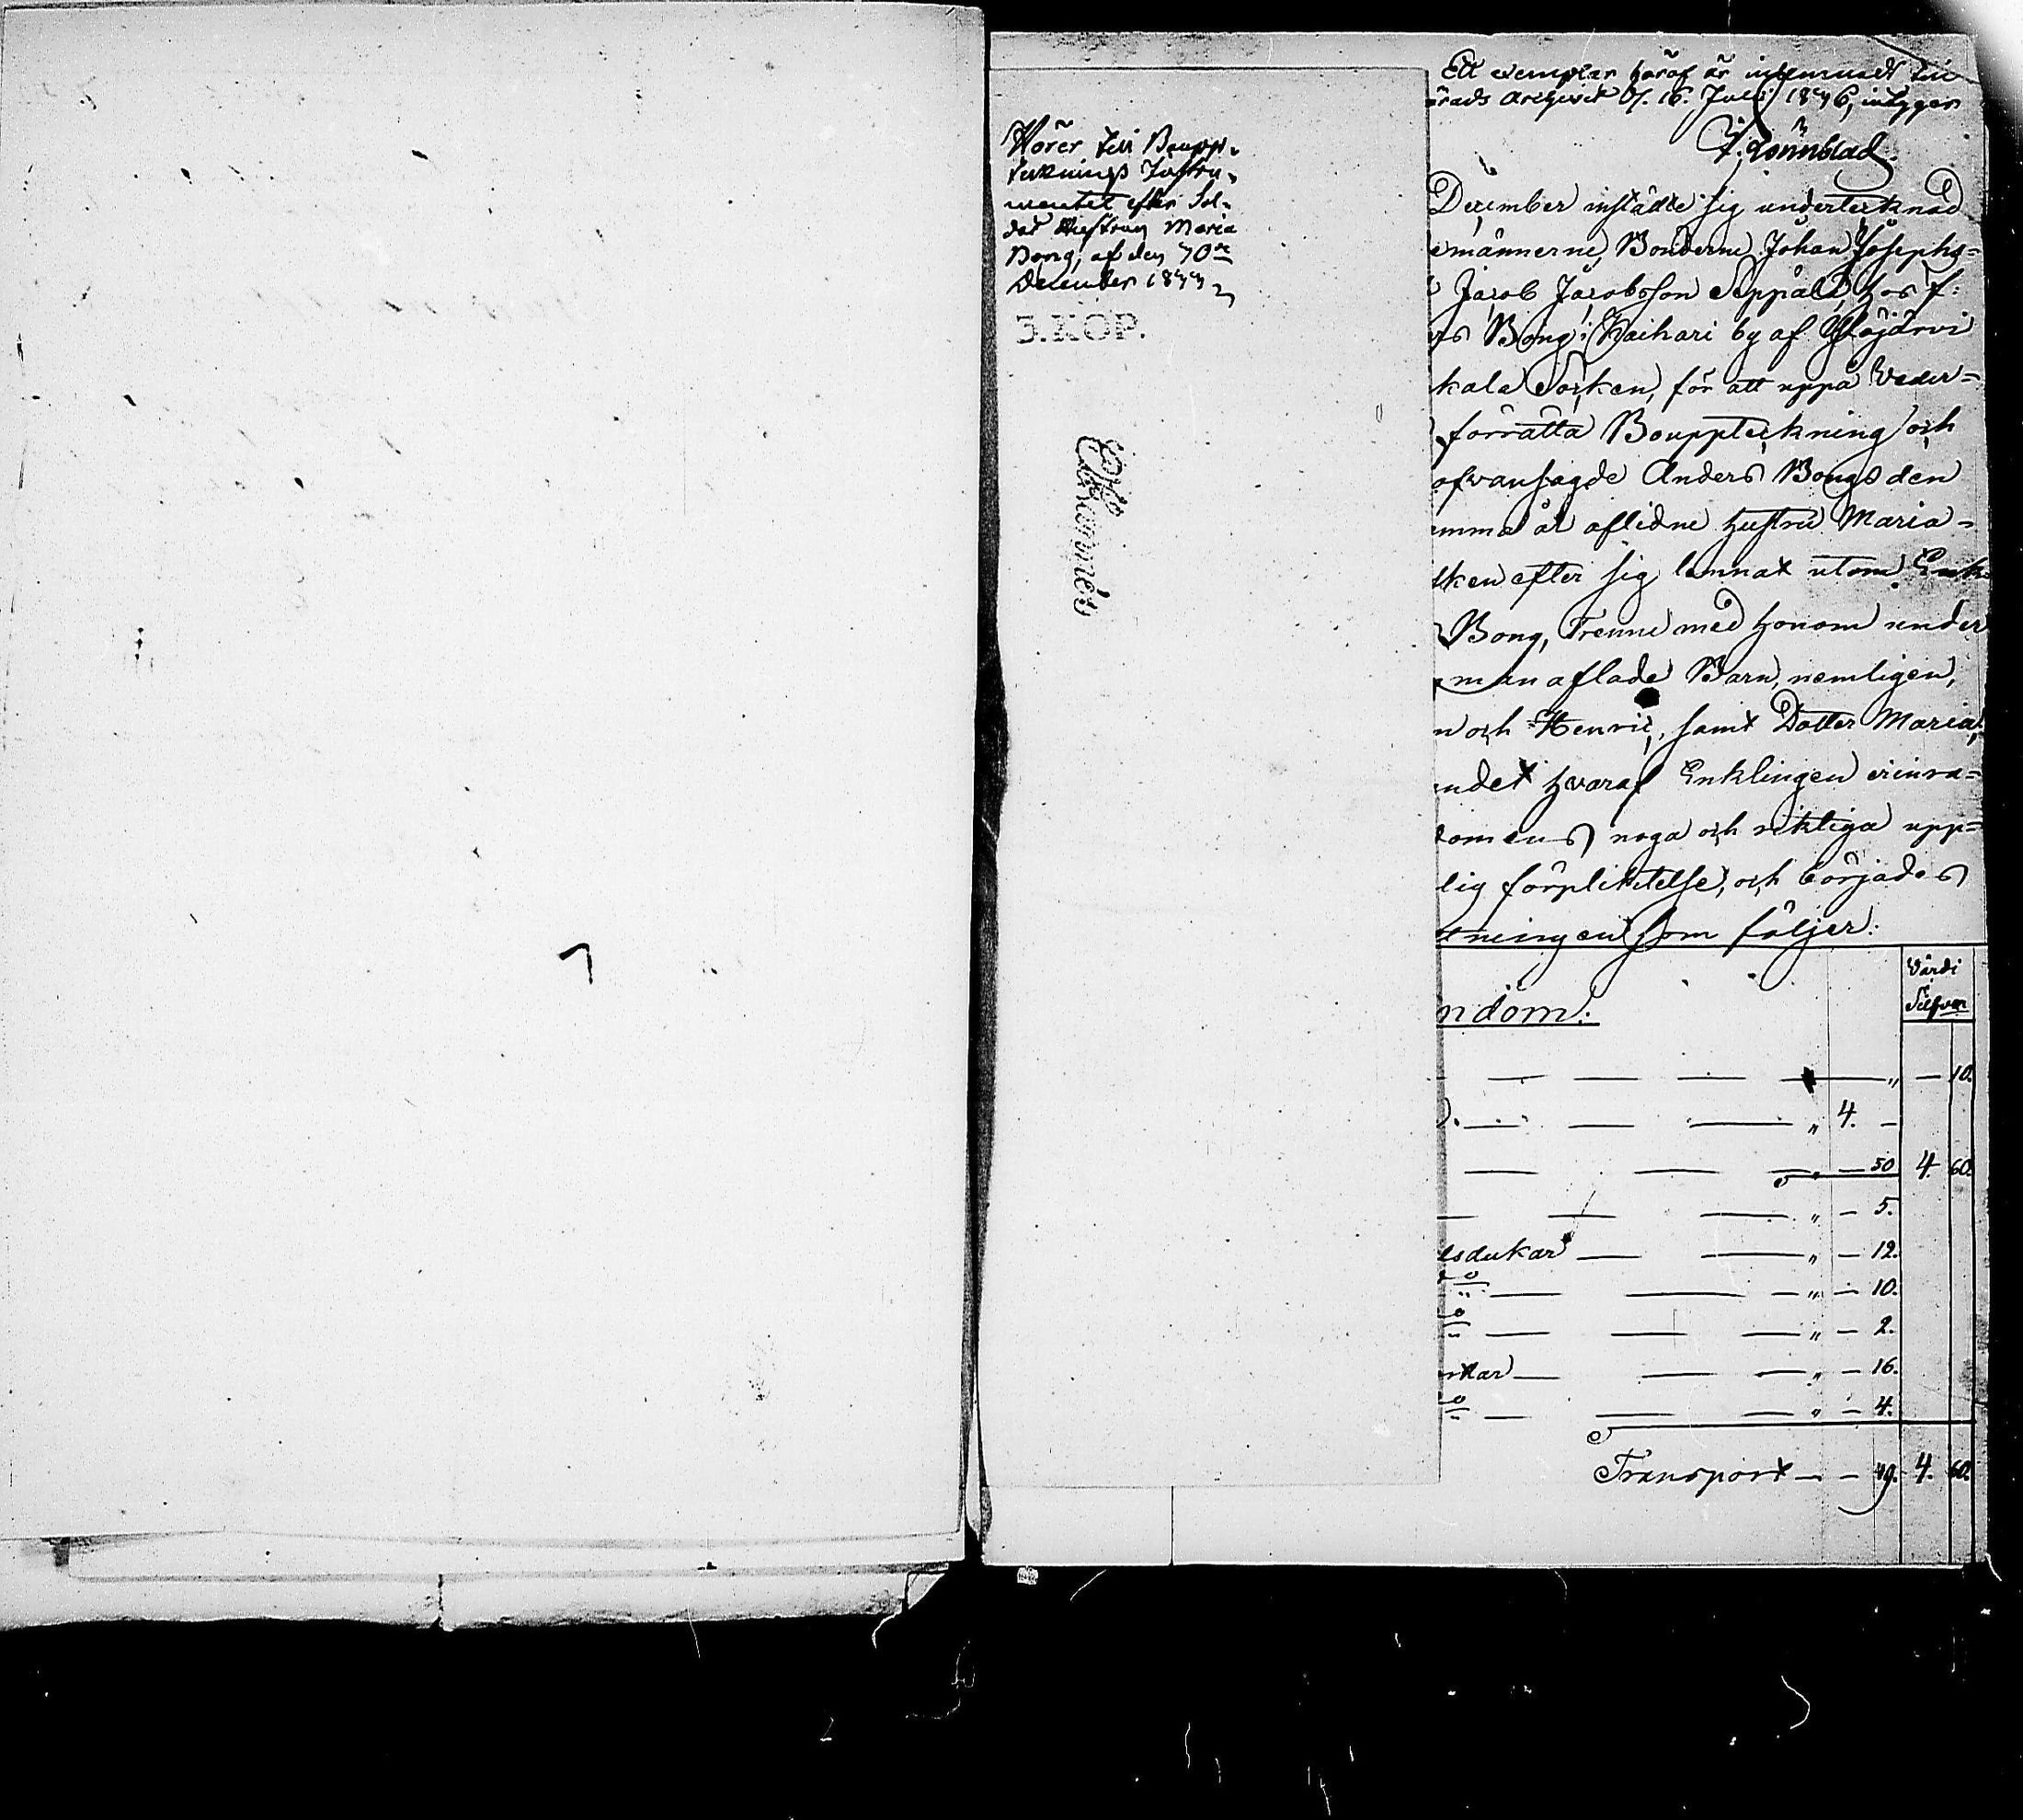 Hörer till Bouppt
teknings Instru-
mentet efter Sol-
dat Hustrun Maria
Bong, af den
December
3.KOP.
Ett exemplar häraf är inlemnadt till
ärads Archivet 16. Juli intygar
Lönnblad
December instälte sig undertecknad
emännerne, Bönderne Johan Josephs=
Jacob Jacobsson Seppälä, hos f:
rs Bong i Kaihari by af Ylöjärvi
kala Socken, för att uppå Veder=
förrätta Bouppteckning och
ofvansagde Anders Bongs den
mma år aflidne hustru Maria
ken efter sig lemnat utom Enk
Bong, Trenne med honom under
man aflade Barn, nemligen,
n och Henric, samt Dotter Maria,
ndet hvaraf Enklingen erinra=
domens noga och riktiga upp=
lig förpliktelse, och börjades
tningen som följer:
Värdi
Silfver
ndom:
" — 10.
" 4. —
" — 50 4. 60.
" — 5.
dukar " — 12.
do " — 10.
do " — 2.
rkar " — 16.
do " — 4.
Transport — — 49. 4. 60.